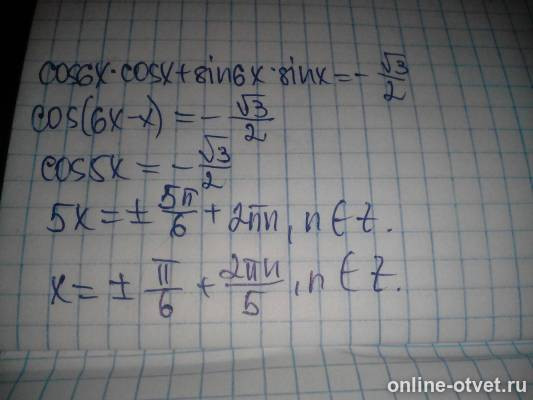 cos6x·cosx+sin6x·sinx=-√3/2
cos(6x-x)=-√3/2
cos5x=-√3/2
5x=±5π/6+2πn, n∈Z.
x=±π/6+2πn/5, n∈Z.
online-otvet.ru